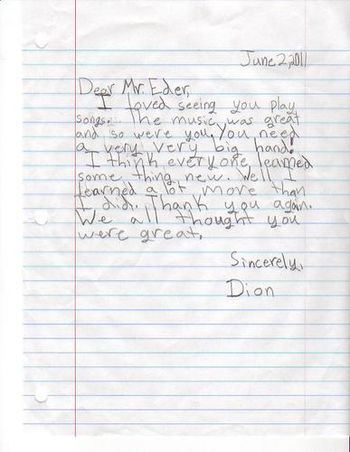 June 2, 2011
Dear Mr. Eder,
I loved seeing you play
songs. The music was great
and so were you. You need
a very very big hand!
I think everyone learned
some thing new. Well I
learned a lot more than
I did. Thank you again.
We all thought you
were great.
Sincerely,
Dion